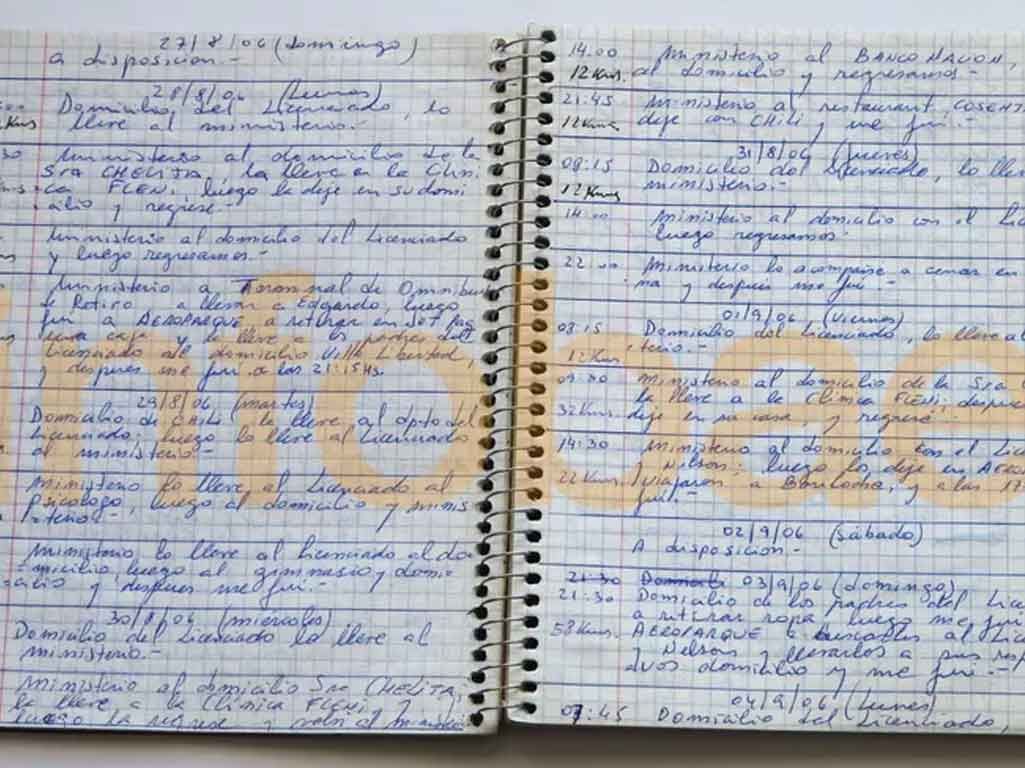 27/8/06 (domingo)
a disposicion.-
28/8/06 (Lunes)
Domicilio del Licenciado, lo
Kms lleve al ministerio.-
30 Ministerio al domicilio de la
Sra CHELITA, la lleve en la Clini
ca FLENI, luego la deje en su domi
cilio y regrese.-
Ministerio al domicilio del Licenciado
y luego regresamos.-
Ministerio a Terminal de Omnibus
de Retiro a llevar a Edgardo, luego
fui a AEROPARQUE a retirar en JET PAQ
una caja y lo lleve a los padres del
Licenciado al domicilio Villa Libertad,
y despues me fui a las 21:15 Hs.
29/8/06 (martes)
Domicilio de Chili lo lleve al dpto del
Licenciado; luego lo lleve al Licenciado
al ministerio.-
Ministerio lo lleve al Licenciado al
Psicologo, luego al domicilio y minis
terio.-
Ministerio lo lleve al Licenciado al do-
micilio, luego al gimnasio y domi-
cilio y despues me fui.-
30/8/06 (miércoles)
Domicilio del Licenciado lo lleve al
ministerio.-
Ministerio al domicilio Sra CHELITA,
la lleve a la Clínica FLENI y
luego la regrese y
14:00 Ministerio al BANCO NACION,
12 Kms. al domicilio y regresamos.-
21:45 Ministerio al restaurant
12 Kms deje con Chili y me fui.-
31/8/06 (jueves)
08:15 Domicilio del Licenciado, lo
12 Kms ministerio.-
14:00 Ministerio al domicilio con el
luego regresamos.
22:00 Ministerio lo acompañe a cenar en
na y después me fui.-
01/9/06 (viernes)
08:15 Domicilio del Licenciado, lo lleve al
12 Kms. terio.-
09:30 Ministerio al domicilio de la Sra
la lleve a la Clínica FLENI; despue
32 Kms. deje en su casa, y regresé.-
14:30 Ministerio al domicilio con el
y Nelson; luego lo deje en
22 Kms. viajaron a Bariloche, y a las 17
fui.-
02/9/06 (sábado)
A disposicion.-
03/9/06 (domingo)
21:30 Domicilio de los padres del
a retirar ropa, luego me fui
58 Kms. AEROPARQUE a buscarlos al
y Nelson y llevarlos a sus resp
tivos domicilio y me fui.-
04/9/06 (Lunes)
07:45 Domicilio del Licenciado,